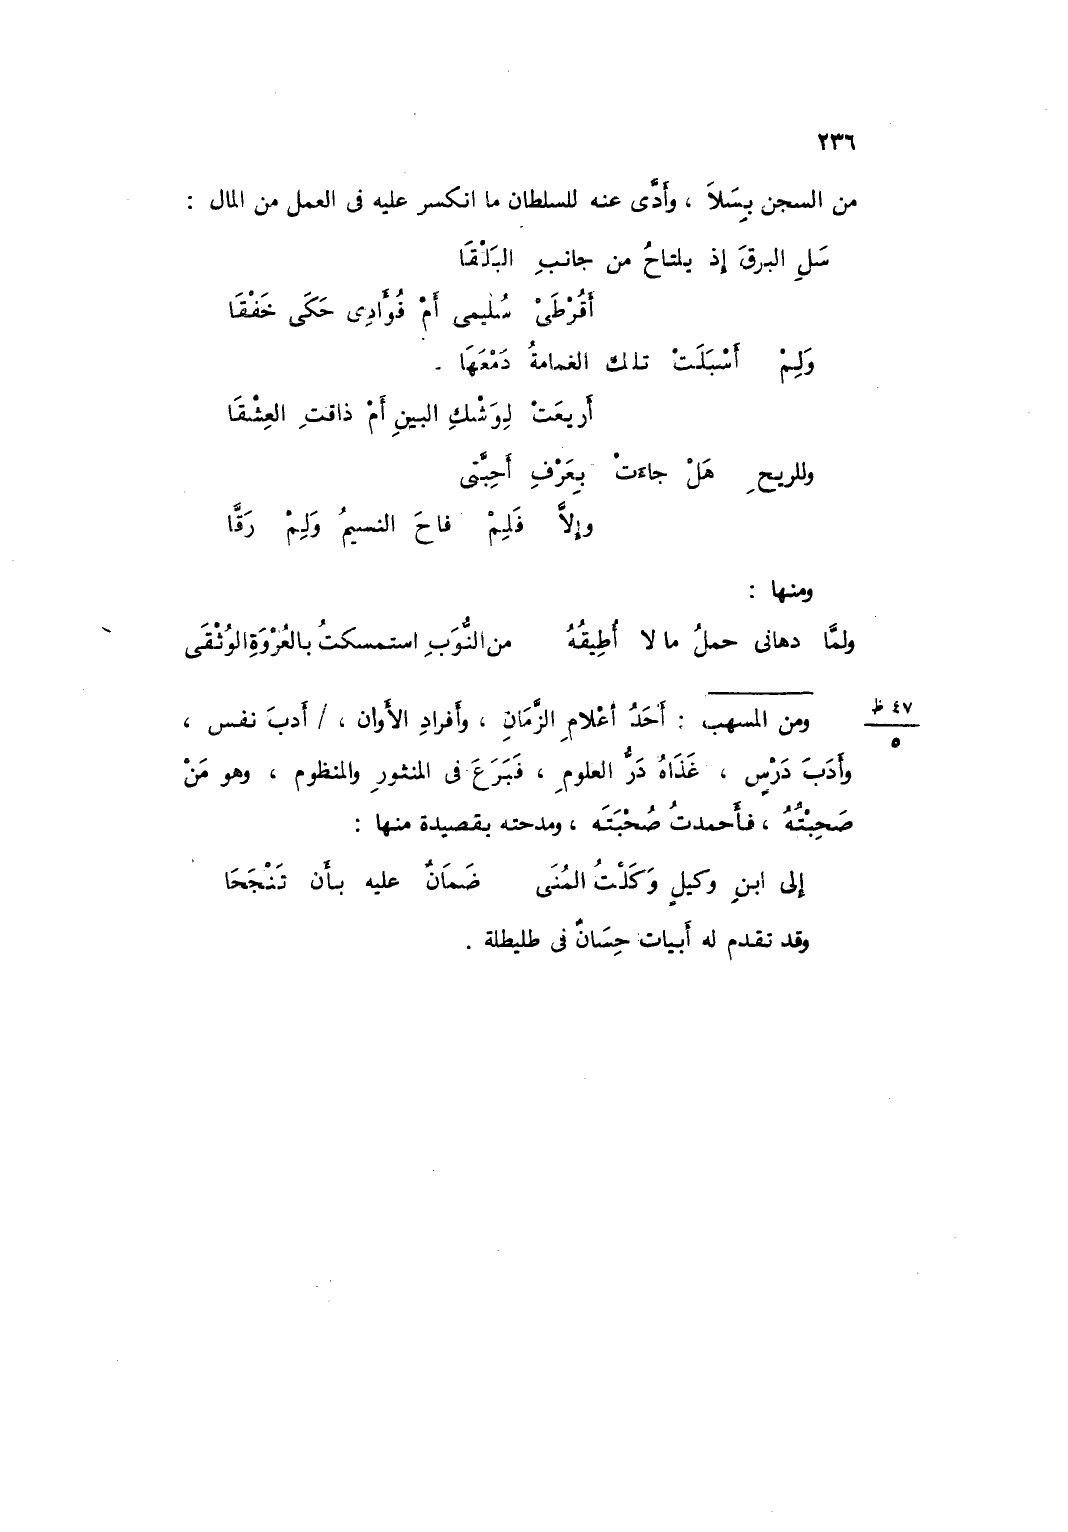 ٢٣٦
من السجن بِسَلاَ ، وأَدَّى عنه للسلطان ما انكسر عليه فى العمل من المال :
سَلِ البرقَ إذ يلتاحُ من جانبِ البَلْقَا
أَقُرْطَىْ سُليمى أَمْ فُؤَادِى حَكَى خَفْقَا
وَلِمْ أَسْبَلَتْ تلك الغمامةُ دَمْعَهَا .
أَريعَتْ لِوَشْكِ البينِ أَمْ ذاقتِ العِشْقَا
وللريحِ هَلْ جاءتْ بِعَرْفِ أَحِبَّتى
وإِلاَّ فَلِمْ فاحَ النسيمُ وَلِمْ رَقَّا
ومنها :
ولمَّا دهانى حملُ ما لا أُطِيقُهُ من النُّوَبِ استمسكتُ بالعُرْوَةِ الوُثْقَى
ومن المسهب : أَحَدُ أَعْلامِ الزَّمَانِ ، وأَفرادِ الأَوان ، / أَدبَ نفس ،
٤٧ ظ
٥
وأَدَبَ دَرْسٍ ، غَذَاهُ دَرُّ العلومِ ، فَبَرَعَ فى المنثورِ والمنظوم ، وهو مَنْ
صَحِبْتُهُ ، فأَحمدتُ صُحْبَتَه ، ومدحته بقصيدة منها :
إلى ابنِ وكيلٍ وَكَلْتُ المُنَى ضَمَانٌ عليه بأَن تَنْجَحَا
وقد تقدم له أَبيات حِسَانٌ فى طليطلة .